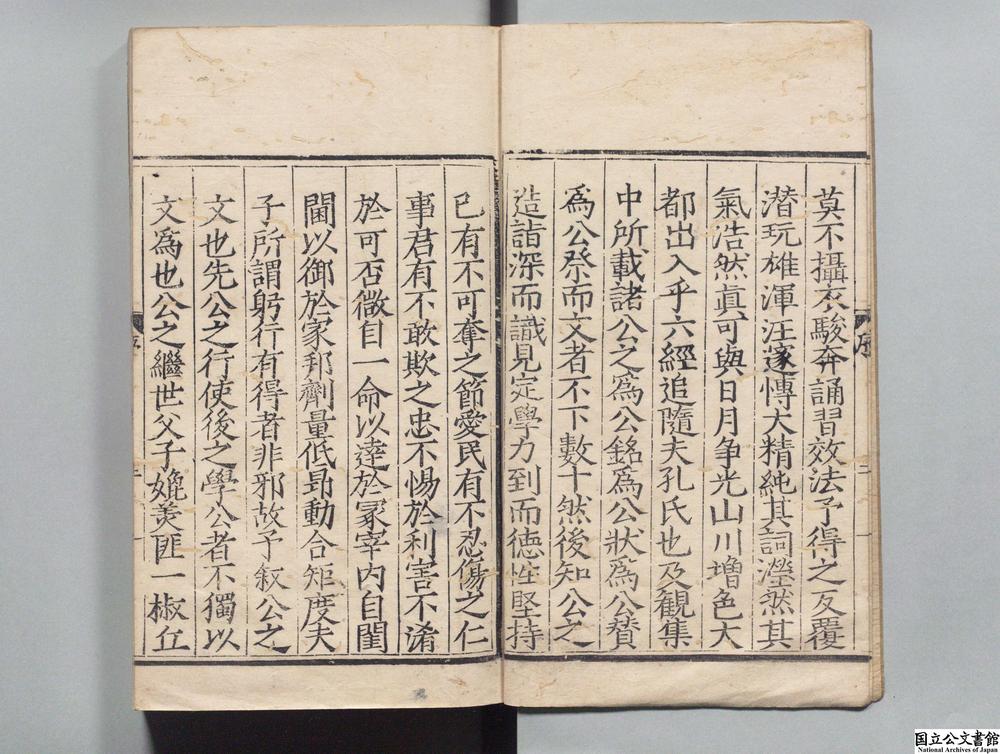 莫不攝衣駿奔誦習效法予得之反覆
潜玩雄渾汪濊愽大精純其詞瀅然其
氣浩然眞可與日月争光山川增色大
都出入乎六經追隨夫孔氏也及觀集
中所載諸公之爲公銘爲公狀爲公賛
爲公祭而文者不下數十然後知公之
造詣深而識見定學力到而徳性堅持
已有不可奪之節愛民有不忍傷之仁
事君有不敢欺之忠不惕於利害不淆
於可否微自一命以逹於冢宰内自閨
閫以御於家邦劑量低昻動合矩度夫
子所謂躬行有得者非邪故予叙公之
文也先公之行使後之學公者不獨以
文爲也公之繼世父子媲羙匪一椒丘
序
二
国立公文書館
National Archives of Japan